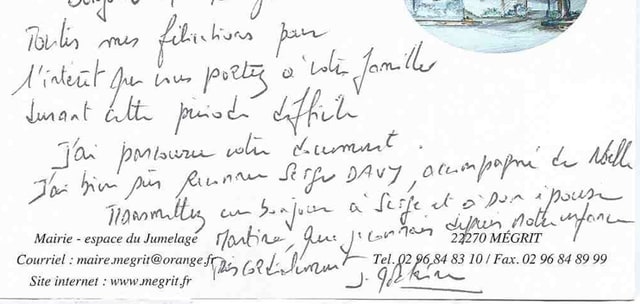 Toutes mes félicitations pour
l'intérêt que vous portez à votre famille
durant cette période difficile
J'ai parcouru votre document.
J'ai bien sûr reconnu Serge DAVY, accompagné de Noëlle
Transmettez un bonjour à Serge et à son épouse
Martine, que je connais depuis notre enfance
Très cordialement
J.
Mairie - espace du Jumelage 22270 MÉGRIT
Courriel : maire.megrit@orange.fr Tel. 02 96 84 83 10 / Fax. 02 96 84 89 99
Site internet : www.megrit.fr